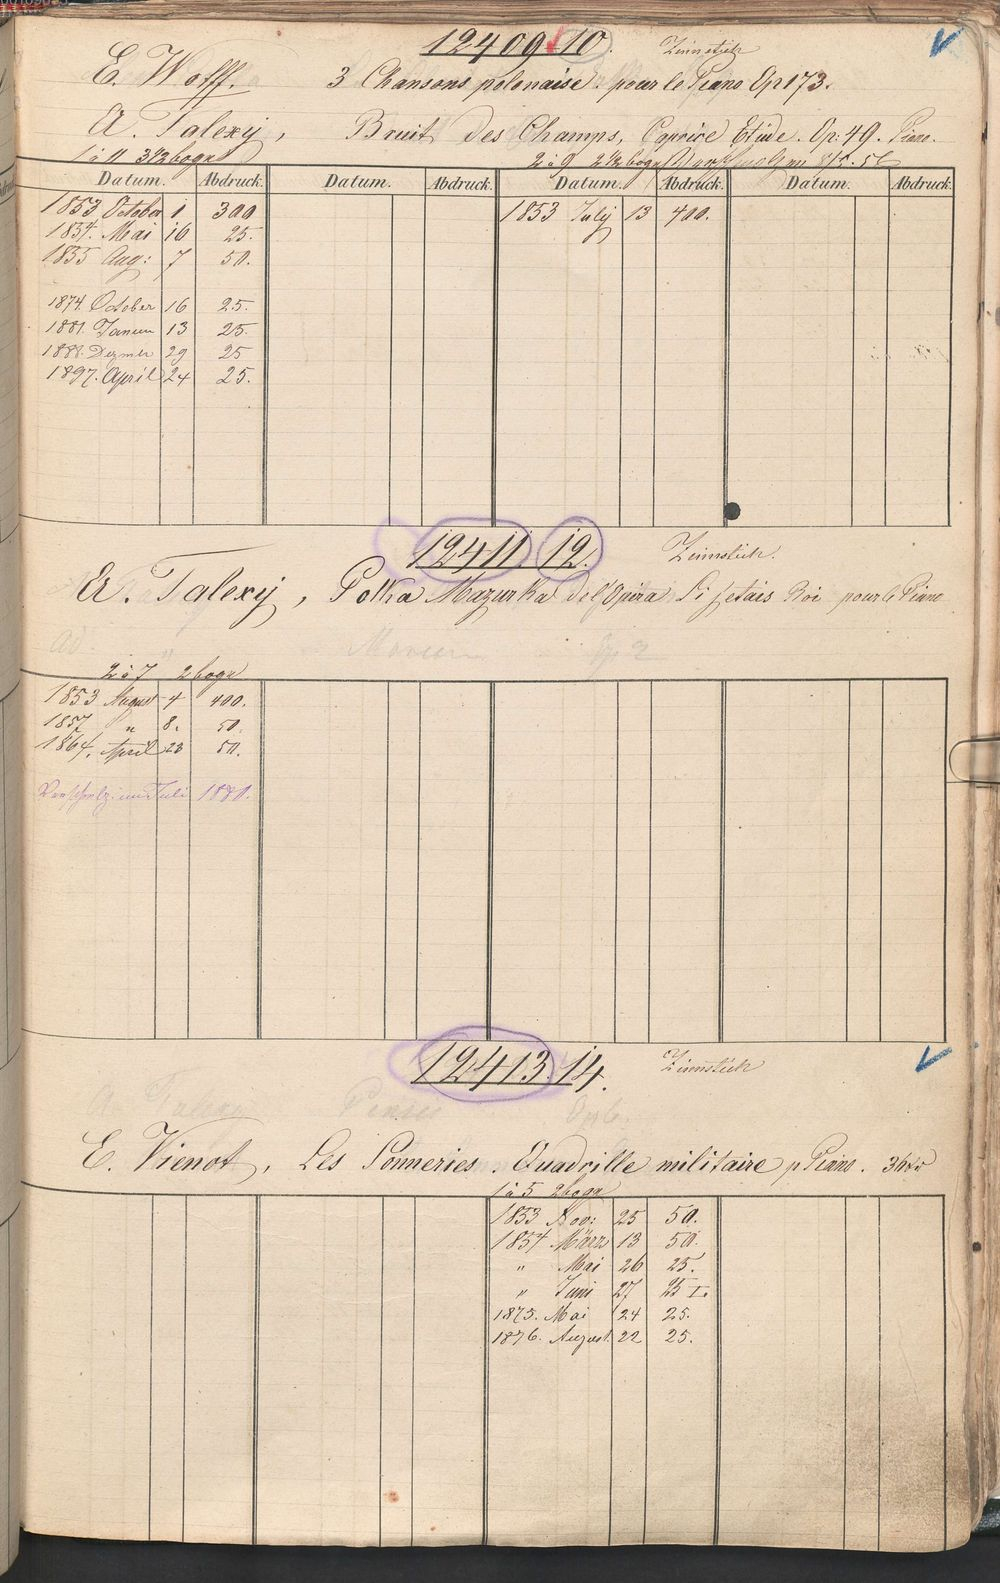 12409.10. Zinnstich
E. Wolff. 3 Chansons polonaise. pour le Piano Op 173.
A. Talexy, Bruit des Champs, Caprice Etude. Op: 49. Piano.
1 à 11 3½ bogn 2 à 9 2½ bogn 8/5. 56
Datum. Abdruck. Datum. Abdruck. Datum. Abdruck. Datum. Abdruck.
1853 October 1 300 1853 July 13 400.
1854. Mai 16 25.
1855 Aug: 7 50.
1874. October 16 25.
1881. Januar 13 25.
1888. Dezmer 29 25
1897. April 24 25.
12411. 12. Zinnstich.
A. Talexy, Polka Mazurka de l'Opéra Si j'etais Roi pour le Piano
2 à 7 2 bogn
1853 August 4 400.
1857 " 8. 50.
1864. April 23 50.
Verschmolz: im Juli 1881.
12413.14. Zinnstich
E. Vienot, Les Sonneries. Quadrille militaire p Piano. 36 xr
1 à 5 2 bogn
1853 Nov: 25 50.
1854 März 13 50.
" Mai 26 25.
" Juni 27 25 I.
1875. Mai 24 25.
1876. August. 22 25.